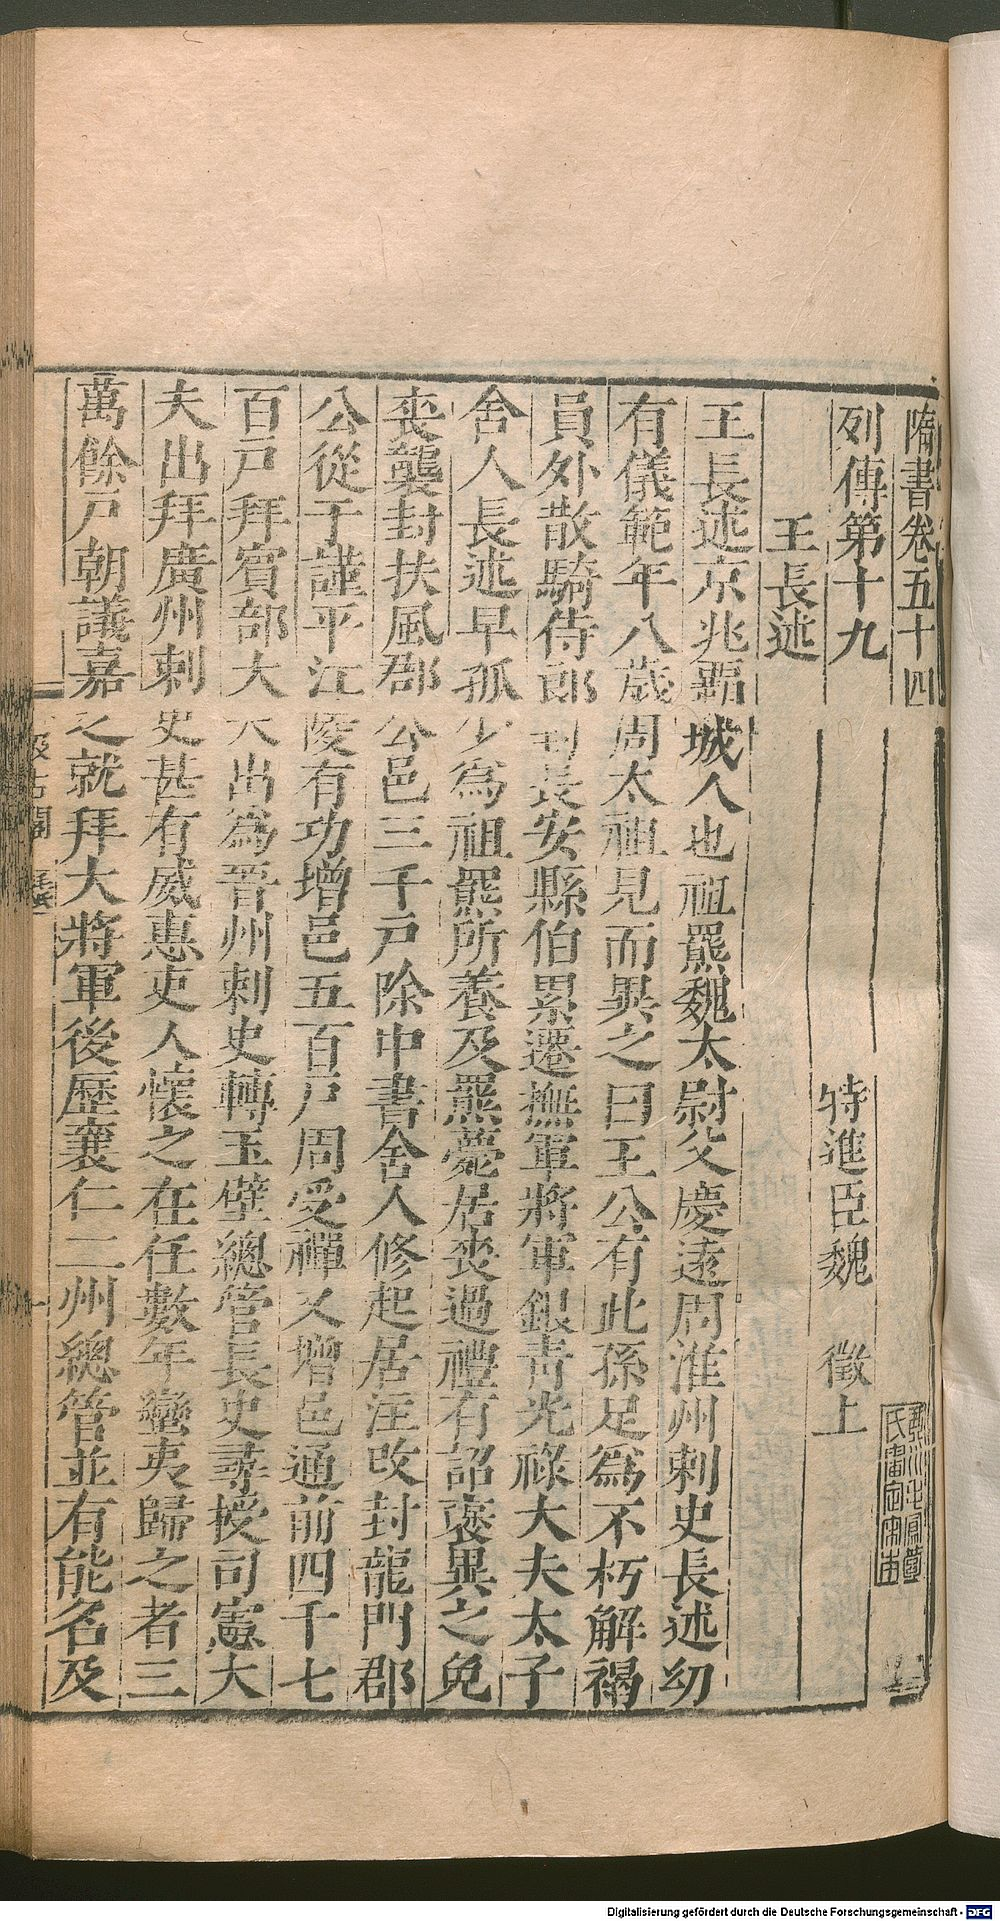 隋書卷五十四
列傳第十九
特進臣魏 徵上
王長述
王長述京兆霸城人也祖羆魏太尉父慶遠周淮州刺史長述幼
有儀範年八歲周太祖見而異之曰王公有此孫足為不朽解褐
員外散騎侍郎封長安縣伯累遷撫軍將軍銀青光祿大夫太子
舍人長述早孤少為祖羆所養及羆薨居喪過禮有詔褒異之免
喪襲封扶風郡公邑三千戶除中書舍人修起居注改封龍門郡
公從于謹平江陵有功增邑五百戶周受禪又增邑通前四千七
百戶拜賓部大夫出為晉州刺史轉玉壁總管長史尋授司憲大
夫出拜廣州刺史甚有威惠吏人懷之在任數年蠻夷歸之者三
萬餘戶朝議嘉之就拜大將軍後歷襄仁二州總管並有能名及
汲古閣
Digitalisierung gefördert durch die Deutsche Forschungsgemeinschaft - DFG